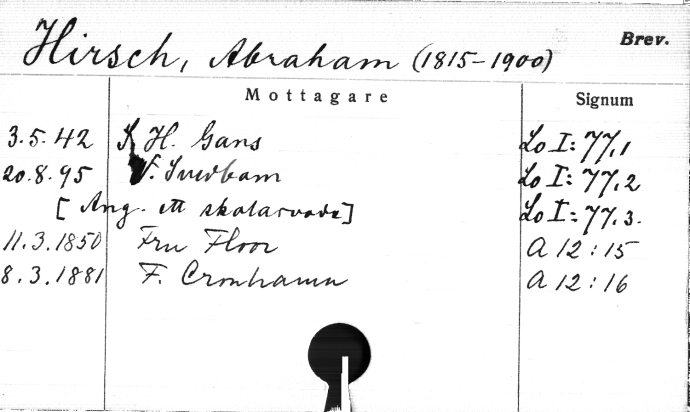 Hirsch, Abraham (1815-1900) Brev.
Mottagare Signum
3.5.42 H. Gans Lo I: 77,1
20.8.95 V. Svedbom Lo I: 77,2
[Ang. ett skolarvode] Lo I: 77,3.
11.3.1850 Fru Floor A 12:15
8.3.1881 F. Cronhamn A 12:16